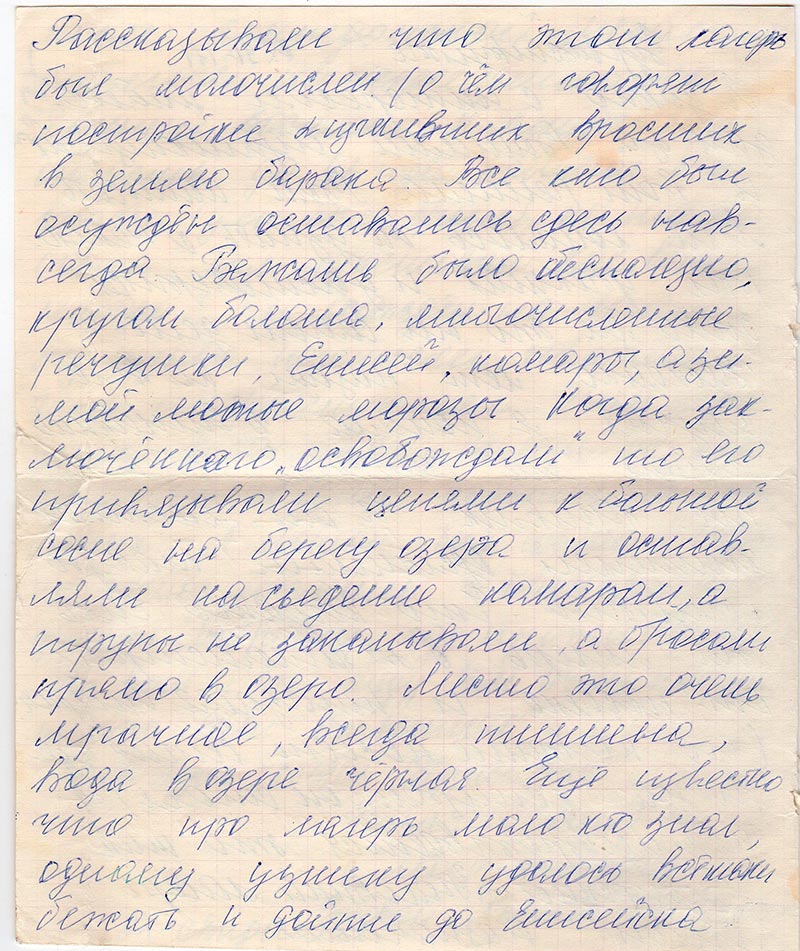 Рассказывали что этот лагерь
был малочислен (о чём говорят
постройки вросших
в землю барака. Все кто был
осуждён оставались здесь нав-
сегда. Бежать было бесполезно,
кругом болота, многочисленные
речушки, Енисей, комары, а зи-
мой лютые морозы. Когда зак-
лючённого „освобождали" то его
привязывали цепями к большой
сосне на берегу озера и остав-
ляли на съедение комарам, а
трупы не закапывали, а бросали
прямо в озеро. Место это очень
мрачное, всегда тишина,
вода в озере чёрная. Ещё известно
что про лагерь мало кто знал,
одному узнику удалось всётаки
бежать и дойти до Енисейска.